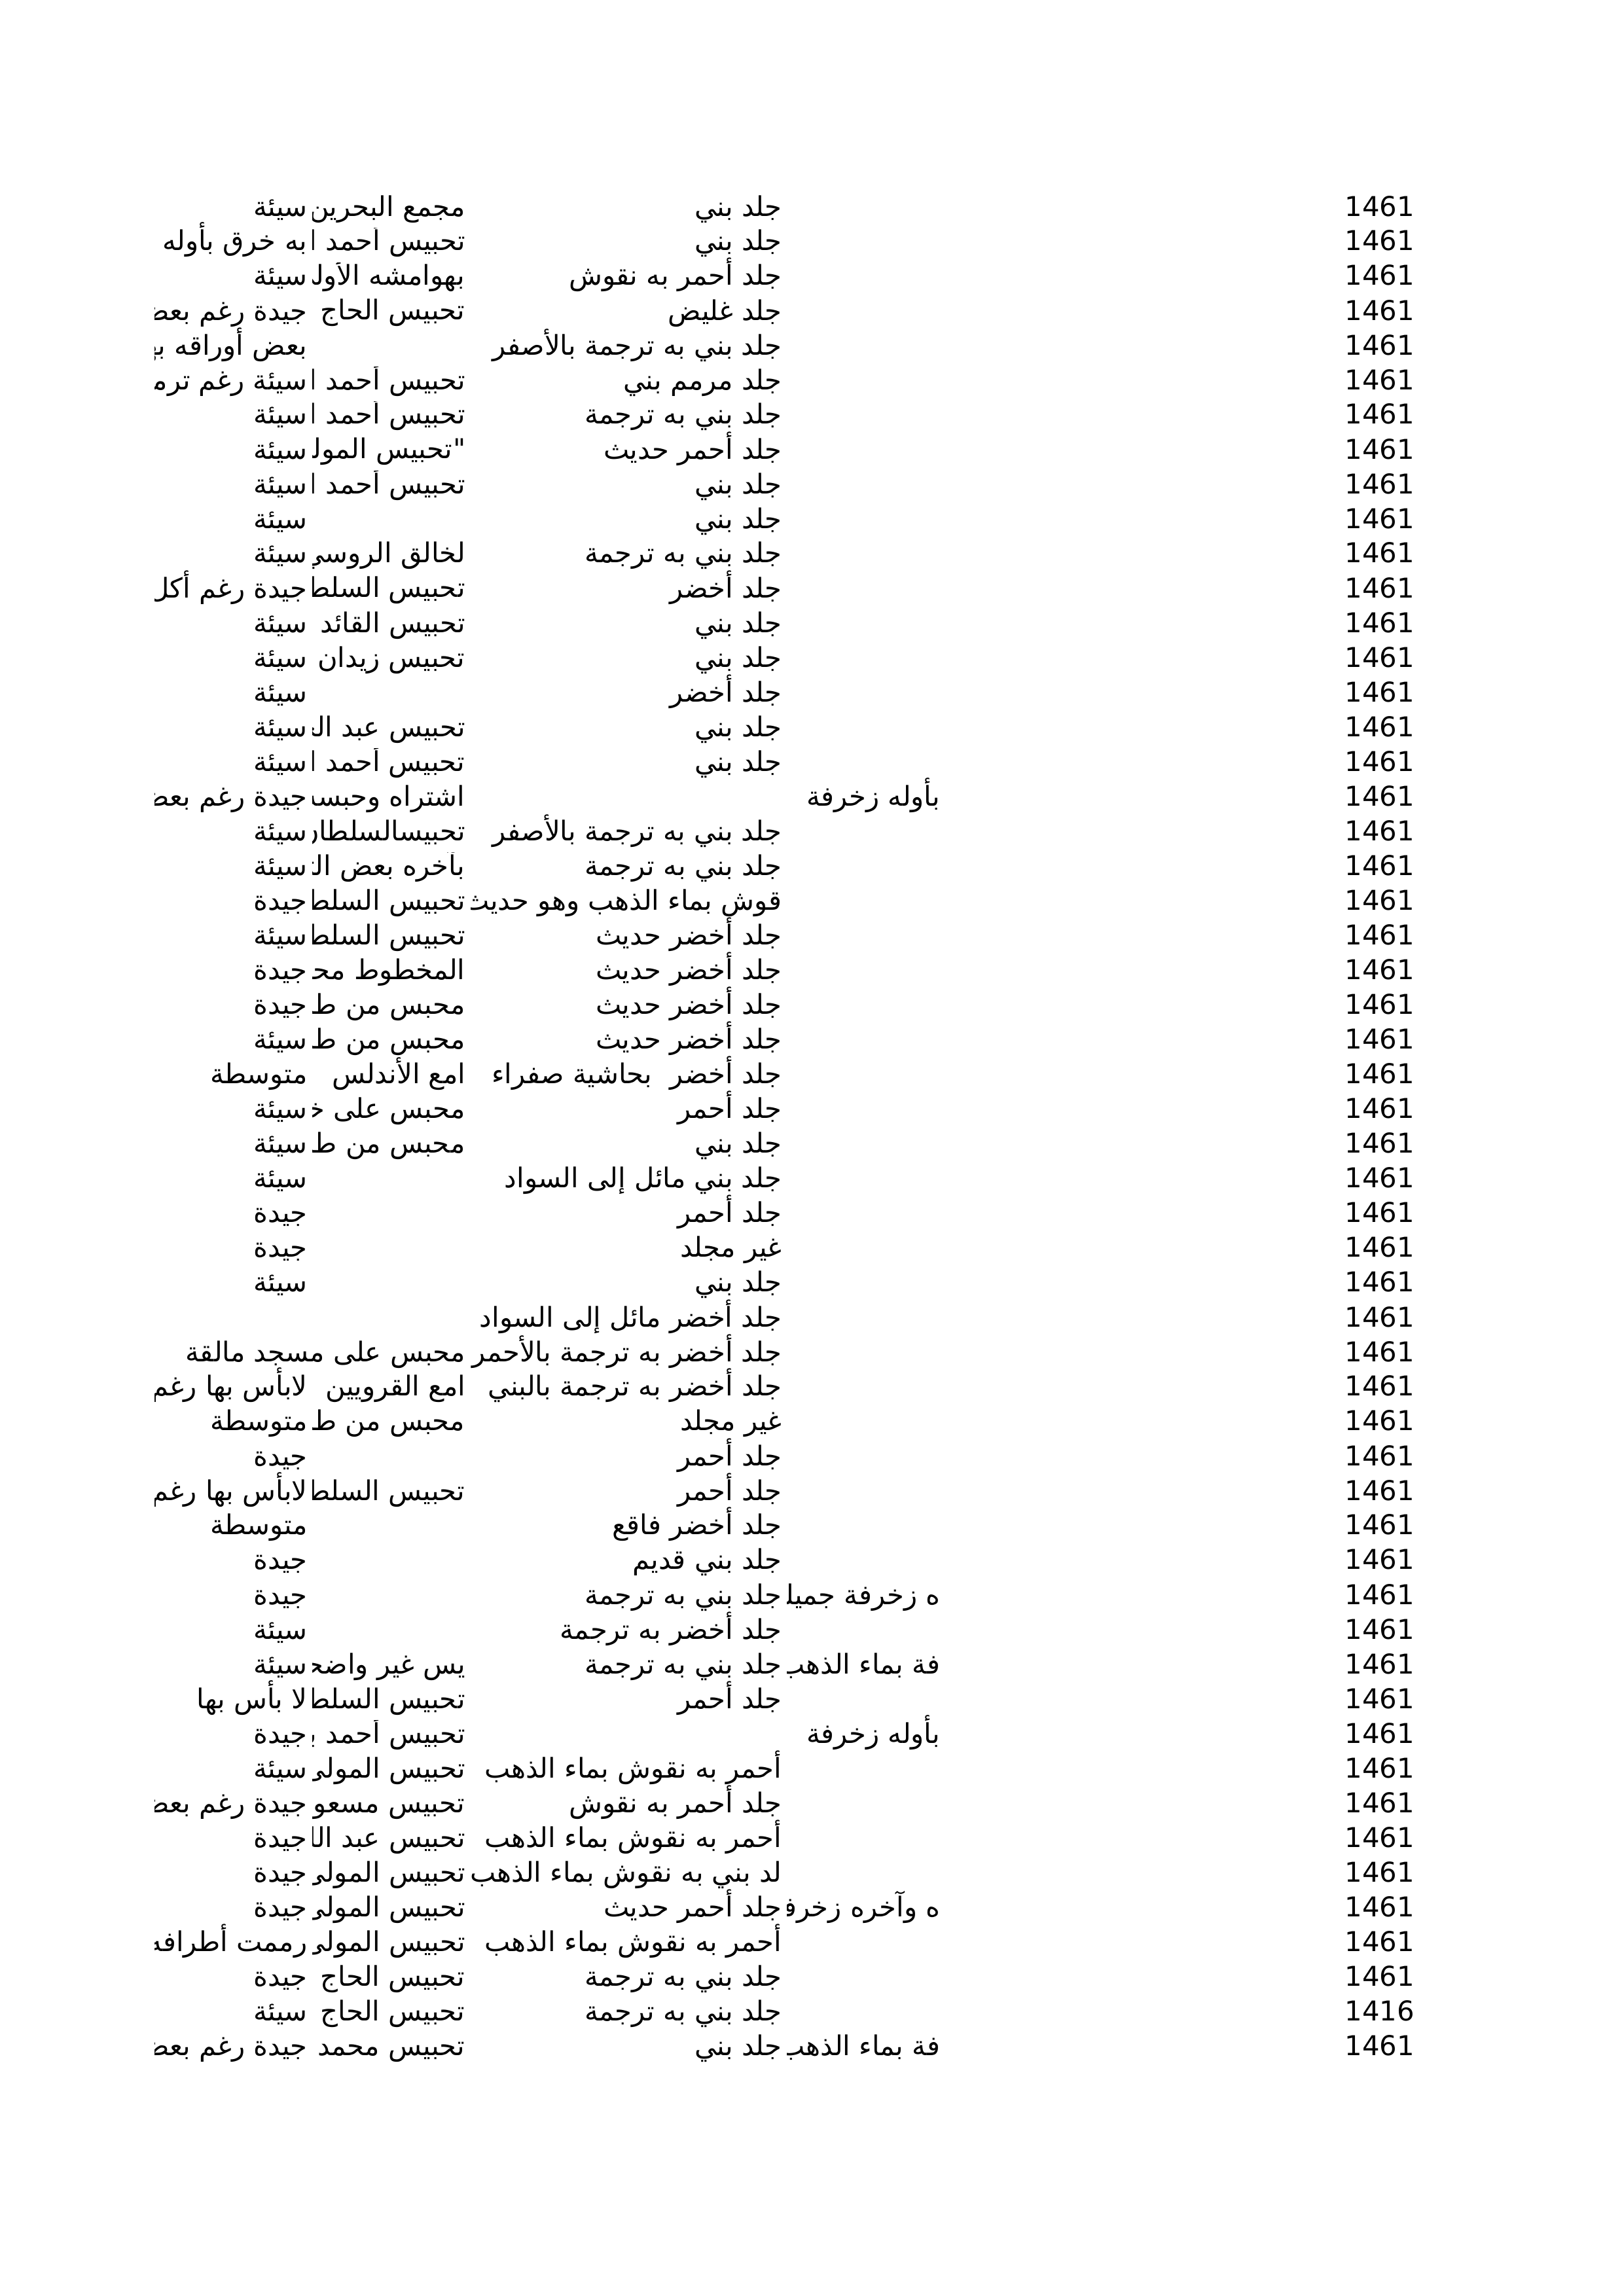 1461 جلد بني مجمع البحرين سيئة
1461 جلد بني تحبيس أحمد ا به خرق بأوله
1461 جلد أحمر به نقوش بهوامشه الأول سيئة
1461 جلد غليض تحبيس الحاج جيدة رغم بعض
1461 جلد بني به ترجمة بالأصفر بعض أوراقه به
1461 جلد مرمم بني تحبيس أحمد ا سيئة رغم ترم
1461 جلد بني به ترجمة تحبيس أحمد ا سيئة
1461 جلد أحمر حديث "تحبيس المول سيئة
1461 جلد بني تحبيس أحمد ا سيئة
1461 جلد بني سيئة
1461 جلد بني به ترجمة لخالق الروسي سيئة
1461 جلد أخضر تحبيس السلط جيدة رغم أكل
1461 جلد بني تحبيس القائد سيئة
1461 جلد بني تحبيس زيدان سيئة
1461 جلد أخضر سيئة
1461 جلد بني تحبيس عبد ال سيئة
1461 جلد بني تحبيس أحمد ا سيئة
1461 بأوله زخرفة اشتراه وحبس جيدة رغم بعض
1461 جلد بني به ترجمة بالأصفر تحبيسالسلطان سيئة
1461 جلد بني به ترجمة بآخره بعض ال سيئة
1461 قوش بماء الذهب وهو حديث تحبيس السلط جيدة
1461 جلد أخضر حديث تحبيس السلط سيئة
1461 جلد أخضر حديث المخطوط مح جيدة
1461 جلد أخضر حديث محبس من ط جيدة
1461 جلد أخضر حديث محبس من ط سيئة
1461 جلد أخضر بحاشية صفراء امع الأندلس متوسطة
1461 جلد أحمر محبس على خ سيئة
1461 جلد بني محبس من ط سيئة
1461 جلد بني مائل إلى السواد سيئة
1461 جلد أحمر جيدة
1461 غير مجلد جيدة
1461 جلد بني سيئة
1461 جلد أخضر مائل إلى السواد
1461 جلد أخضر به ترجمة بالأحمر محبس على مسجد مالقة
1461 جلد أخضر به ترجمة بالبني امع القرويين لابأس بها رغم
1461 غير مجلد محبس من ط متوسطة
1461 جلد أحمر جيدة
1461 جلد أحمر تحبيس السلط لابأس بها رغم
1461 جلد أخضر فاقع متوسطة
1461 جلد بني قديم جيدة
1461 ه زخرفة جميل جلد بني به ترجمة جيدة
1461 جلد أخضر به ترجمة سيئة
1461 فة بماء الذهب جلد بني به ترجمة يس غير واضح سيئة
1461 جلد أحمر تحبيس السلط لا بأس بها
1461 بأوله زخرفة تحبيس أحمد ب جيدة
1461 أحمر به نقوش بماء الذهب تحبيس المولى سيئة
1461 جلد أحمر به نقوش تحبيس مسعو جيدة رغم بعض
1461 أحمر به نقوش بماء الذهب تحبيس عبد الل جيدة
1461 لد بني به نقوش بماء الذهب تحبيس المولى جيدة
1461 ه وآخره زخرف جلد أحمر حديث تحبيس المولى جيدة
1461 أحمر به نقوش بماء الذهب تحبيس المولى رممت أطرافه
1461 جلد بني به ترجمة تحبيس الحاج جيدة
1416 جلد بني به ترجمة تحبيس الحاج سيئة
1461 فة بماء الذهب جلد بني تحبيس محمد جيدة رغم بعض